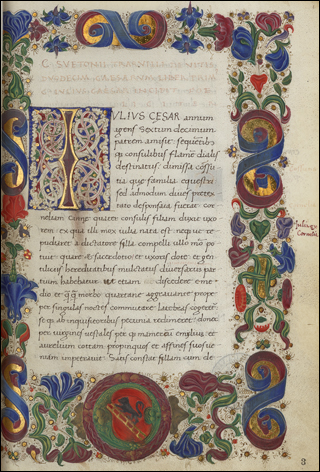 C SVETONII TRANQVILLI DE VITA
IVLIVS CESAR annum
agens Sextum decimum
patrem amisit sequentibus
consulibus flamen dialis
destinatus: dimissa cossu
tia que familia equestri
sed admodum dives pretex
tato desponsata fuerat: cor
neliam Cinne quater consulis filiam duxit uxo
rem: ex qua illi mox iulia nata est: neque ut re
pudiaret a dictatore silla compelli ullo modo po
tuit: quare et sacerdotio et uxoris dote et gen
tiliciis hereditatibus mulctatus diversarum par
tium habebatur ut etiam discedere e me
dio et quamquam morbo quartane aggravante prope
per singulas noctes commutare latebras cogeret
se que ab inquisitoribus pecunia redimeret: donec
per virgines vestales per que mamercum emylium et
aurelium cottam propinquos et affines suos ve
niam impetravit. Satis constat sillam cum de
Cornelia
8